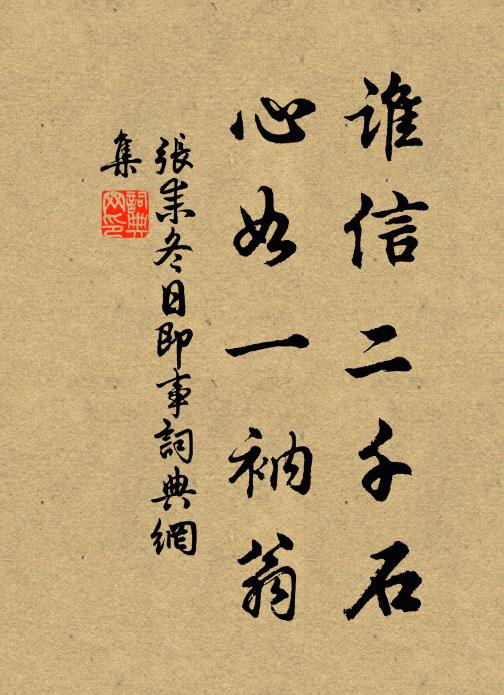 誰信二千石
心如一衲翁
張耒冬日即事詞典網
集
詞典網印